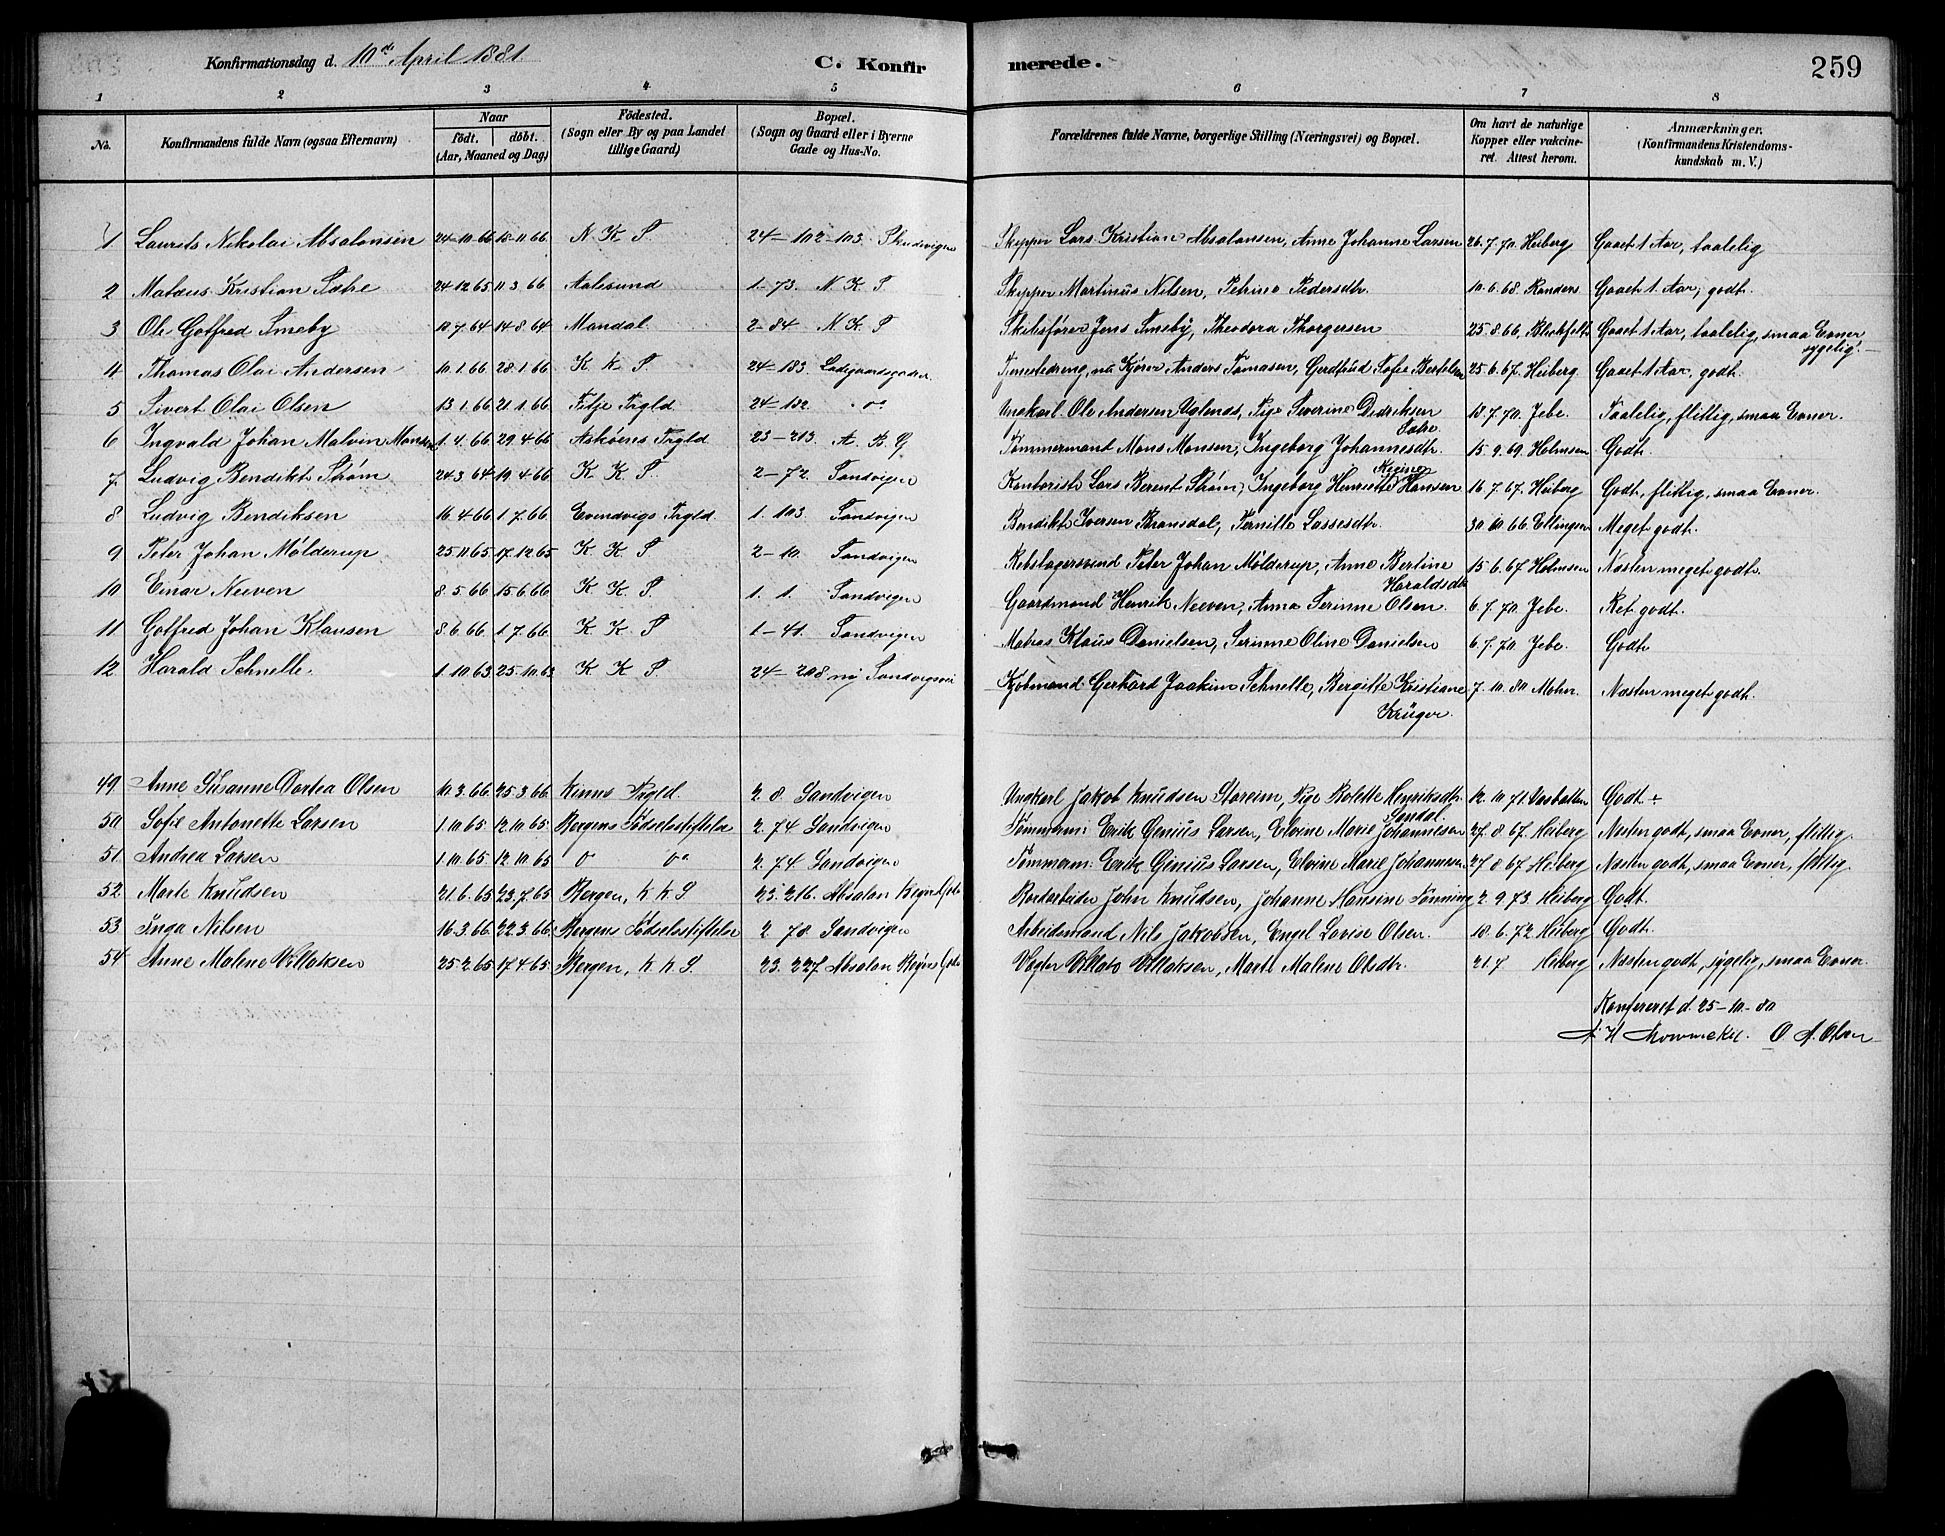 Konfirmationsdag d. 10de April 1881. C. Konfirmerede. 259
1 2 3 4 5 6 7 8
No. Konfirmandens fulde Navn (ogsaa Efternavn) Naar födt. döbt. (Aar, Maaned og Dag) Födested. (Sogn eller By og paa Landet tillige Gaard) Bopæl. (Sogn og Gaard eller i Byerne Gade og Hus-No. Forældrenes fulde Navne, borgerlige Stilling (Næringsvei) og Bopæl. Om havt de naturlige Kopper eller vakcineret. Attest herom. Anmærkninger. (Konfirmandens Kristendomskundskab m. V.)
1 Laurits Nikolai Absalonsen 24-10-66 18-11 66 N. K. S. 24-102-103. Skudevigen Skipper Lars Kristian Absalonsen, Anne Johanne Larsen 26.7.70. Heiberg Gaaet 1 Aar, taalelig
2 Mataus Kristian Sætre 24 12 65 11 3 66 Aalesund 1-73. N. K. S Skipper Martinus Nilsen, Petrine Pedersdtr. 10.6.68. Randers Gaaet 1 Aar, godt.
3 Ole Gotfred Smeby 10 7 64 14 8 64 Mandal 2-84 N. K. S Skibsfører Jens Smeby, Theodora Thorgersen 25.8.66. Blichfeldt Gaaet 1 Aar, taalelig, smaa Evner sygelig.
4 Thomas Olai Andersen 10.1.66 28.1.66 K K S. 24-183. Ladegaardsgaden. Tjenestedreng, nu Kjører Anders Tomasen, Gerdtrud Sofie Bertelsen 25.6.67. Heiberg Gaaet 1 Aar, godt.
5 Sivert Olai Olsen 13 1.66 21 1.66 Fitje Prgld. 24-132. do Ungkarl Ole Andersen Uglenes, Pige Severine Dedriksen Sætre 18.7.70. Jebe. Taalelig, flittig, smaa Evner.
6 Ingvald Johan Malvin Monsen 1.4.66 29.4.66 Askøens Prgld 23-213. A. B. G. Tømmermand Mons Monsen, Ingeborg Johannesdtr. 15.9.69. Holmsen Godt.
7 Ludvig Bendikt Strøm 24.3.64 19.4.66 K. K. S. 2-72. Sandvigen Kontorist Lars Berent Strøm, Ingeborg Henriette Regine Hansen 16.7.67. Heiberg Godt, flittig, smaa Evner.
8 Ludvig Bendiksen 16.4.66 1 7.66 Evendvigs Prgld. 1. 103. Sandvigen Bendikt Iversen Bransdal, Pernille Lassesdtr. 30 10 66 Ellingsen Meget godt.
9 Peter Johan Mølderup 25 11 65 17.12 65 K. K. S 2-10. Sandvigen Rebslagersvend Peter Johan Mølderup, Anne Bertine Haraldsdtr 15.6.67 Holmsen Næsten meget godt.
10 Einar Neeven 8.5.66 15.6.66 K K S. 1. 1. Sandvigen Gaardmand Henrik Neeven, Anna Serinne Olsen. 6.7.70. Jebe. Ret godt.
11 Gotfred Johan Klausen 8.6.66 1.7.66. K K. S 1-41. Sandvigen Matias Klaus Danielsen, Serinne Oline Danielsen 6.7.70. Jebe. Godt
12 Harald Schnelle. 1.10.63 25.10.63 K K S 24-208 ny Sandvigsvei Kjøbmand Gerhard Joakim Schnelle, Bergitte Kristiane Krüger. 7.10.80 Mohn. Næsten meget godt.
49 Anne Susanne Dortea Olsen 10.3.66. 25.3.66. Kinns Prgld. 2. 8. Sandvigen Ungkarl Jakob Knudsen Storeim, Pige Bolette Henriksdtr. Sandal. 12.10.71. Godt +
50 Sofie Antonette Larsen 1.10.65. 12.10.65. Bergens Födselsstiftelse 2. 74 Sandvigen Tømmerm: Erik Genius Larsen, Elvine Marie Johannesen 27.8.67. Heiberg Næsten godt, smaa Evner, flittig.
51. Andrea Larsen 1.10.65 12.10.65 do do 2. 74 Sandvigen Tømmerm: Erik Genius Larsen, Elvine Marie Johannesen 27 8 67 Heiberg Næsten godt, smaa Evner, flittig.
52 Marte Knudsen 21.6.65 23.7.65 Bergen, K K S 23. 216. Absalon Beyers Gade Bordarbeider John Knudsen, Johanne Hansine Tønning 2 9 73 Heiberg Godt.
53 Inga Nilsen 16.3.66 22.3.66 Bergens Födselsstiftelse 2 78. Sandvigen Arbeidsmand Nils Jakobsen, Engel Lovise Olsen. 18.6.72 Heiberg Godt.
54 Anne Malene Villaksen 25 2 65 17 4 65 Bergen, K K S. 23. 227 Absalon Beyers Gade Vægter Villats Villaksen, Marte Malene Olsdtr. 21.7 Heiberg Næsten godt, sygelig, smaa Evner.
Konfereret d. 25-10-80
O. A. Olsen